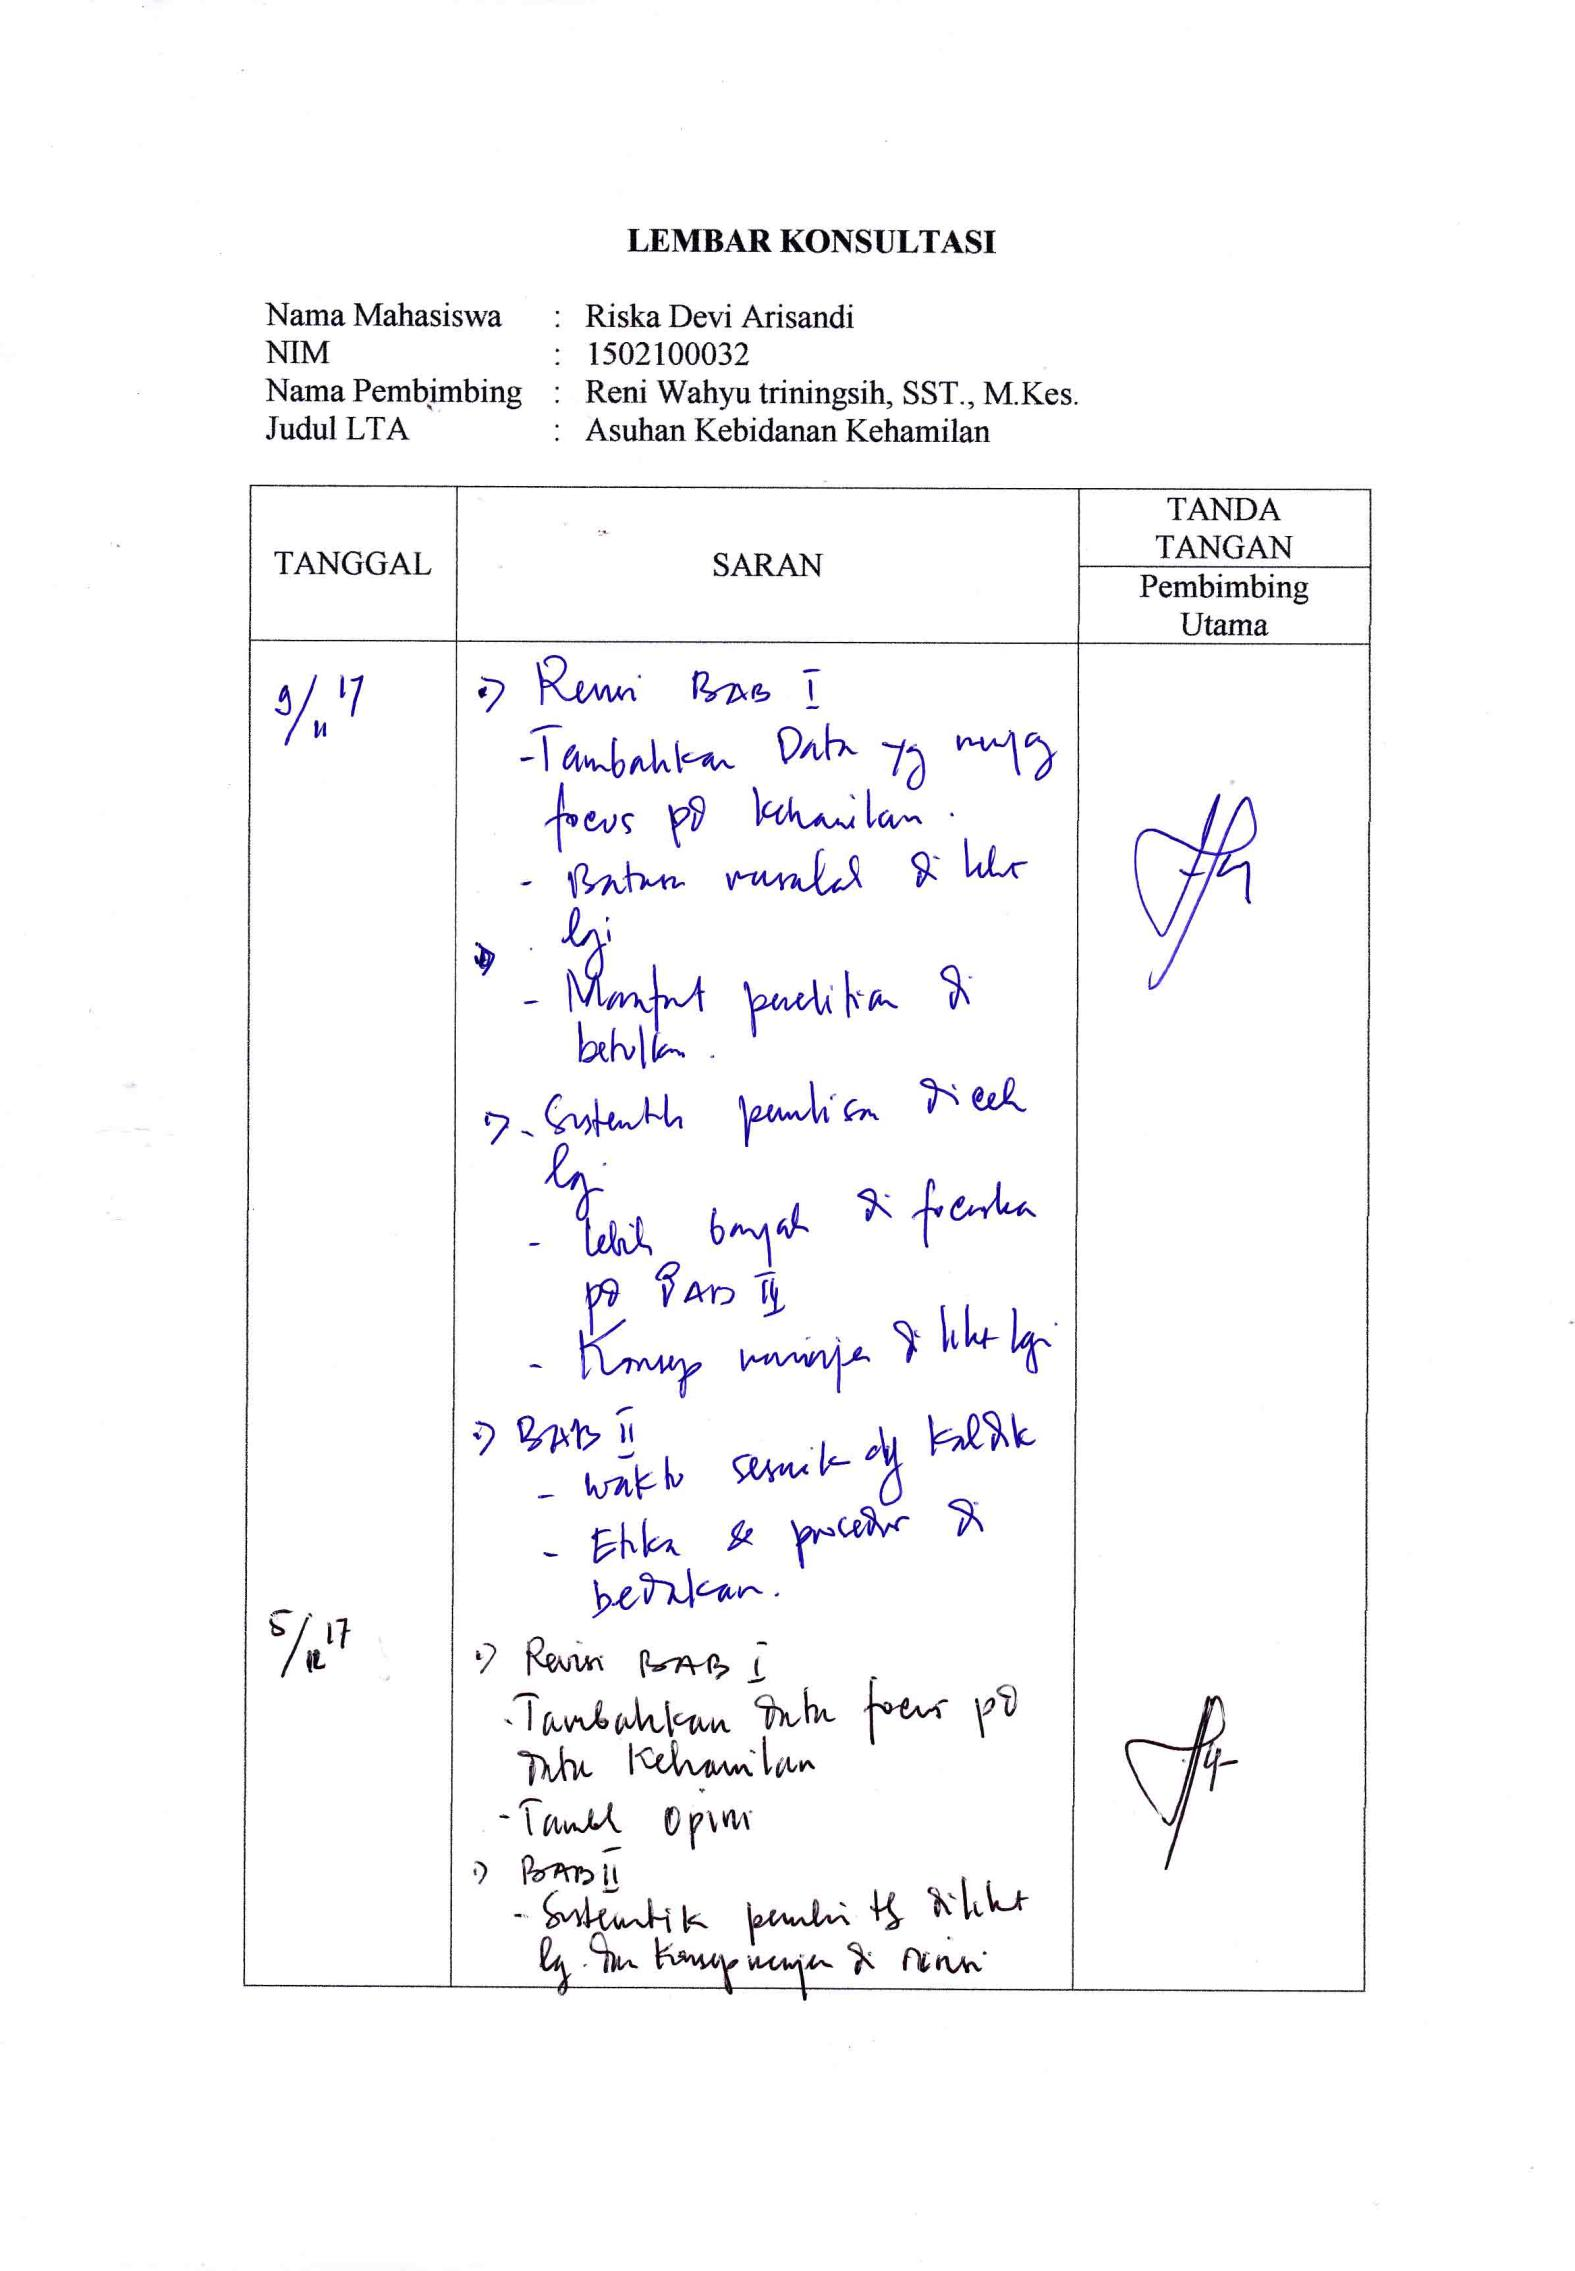 LEMBAR KONSULTASI
Nama Mahasiswa : Riska Devi Arisandi
NIM : 1502100032
Nama Pembimbing : Reni Wahyu triningsih, SST., M.Kes.
Judul LTA : Asuhan Kebidanan Kehamilan
TANGGAL
SARAN
TANDA
TANGAN
Pembimbing
Utama
9/11 17
Revisi BAB I
- Tambahkan Data yg
focus pd kehamilan.
- Batasan masalah di liht
lgi
- Manfaat penelitian di
betulkan.
- Sistematik penulisan dicek
lgi
- lebih banyak di focuska
pd BAB
- Konsep di liht lgi
BAB II
- waktu sesuik dg kaldik
- Etika & procedur di
bedakan.
5/12 17
Revisi BAB I
- Tambahkan data focus pd
data Kehamilan
- Tambah Opini
BAB II
- Sistematik diliht
lg. dan Konsep di revisi